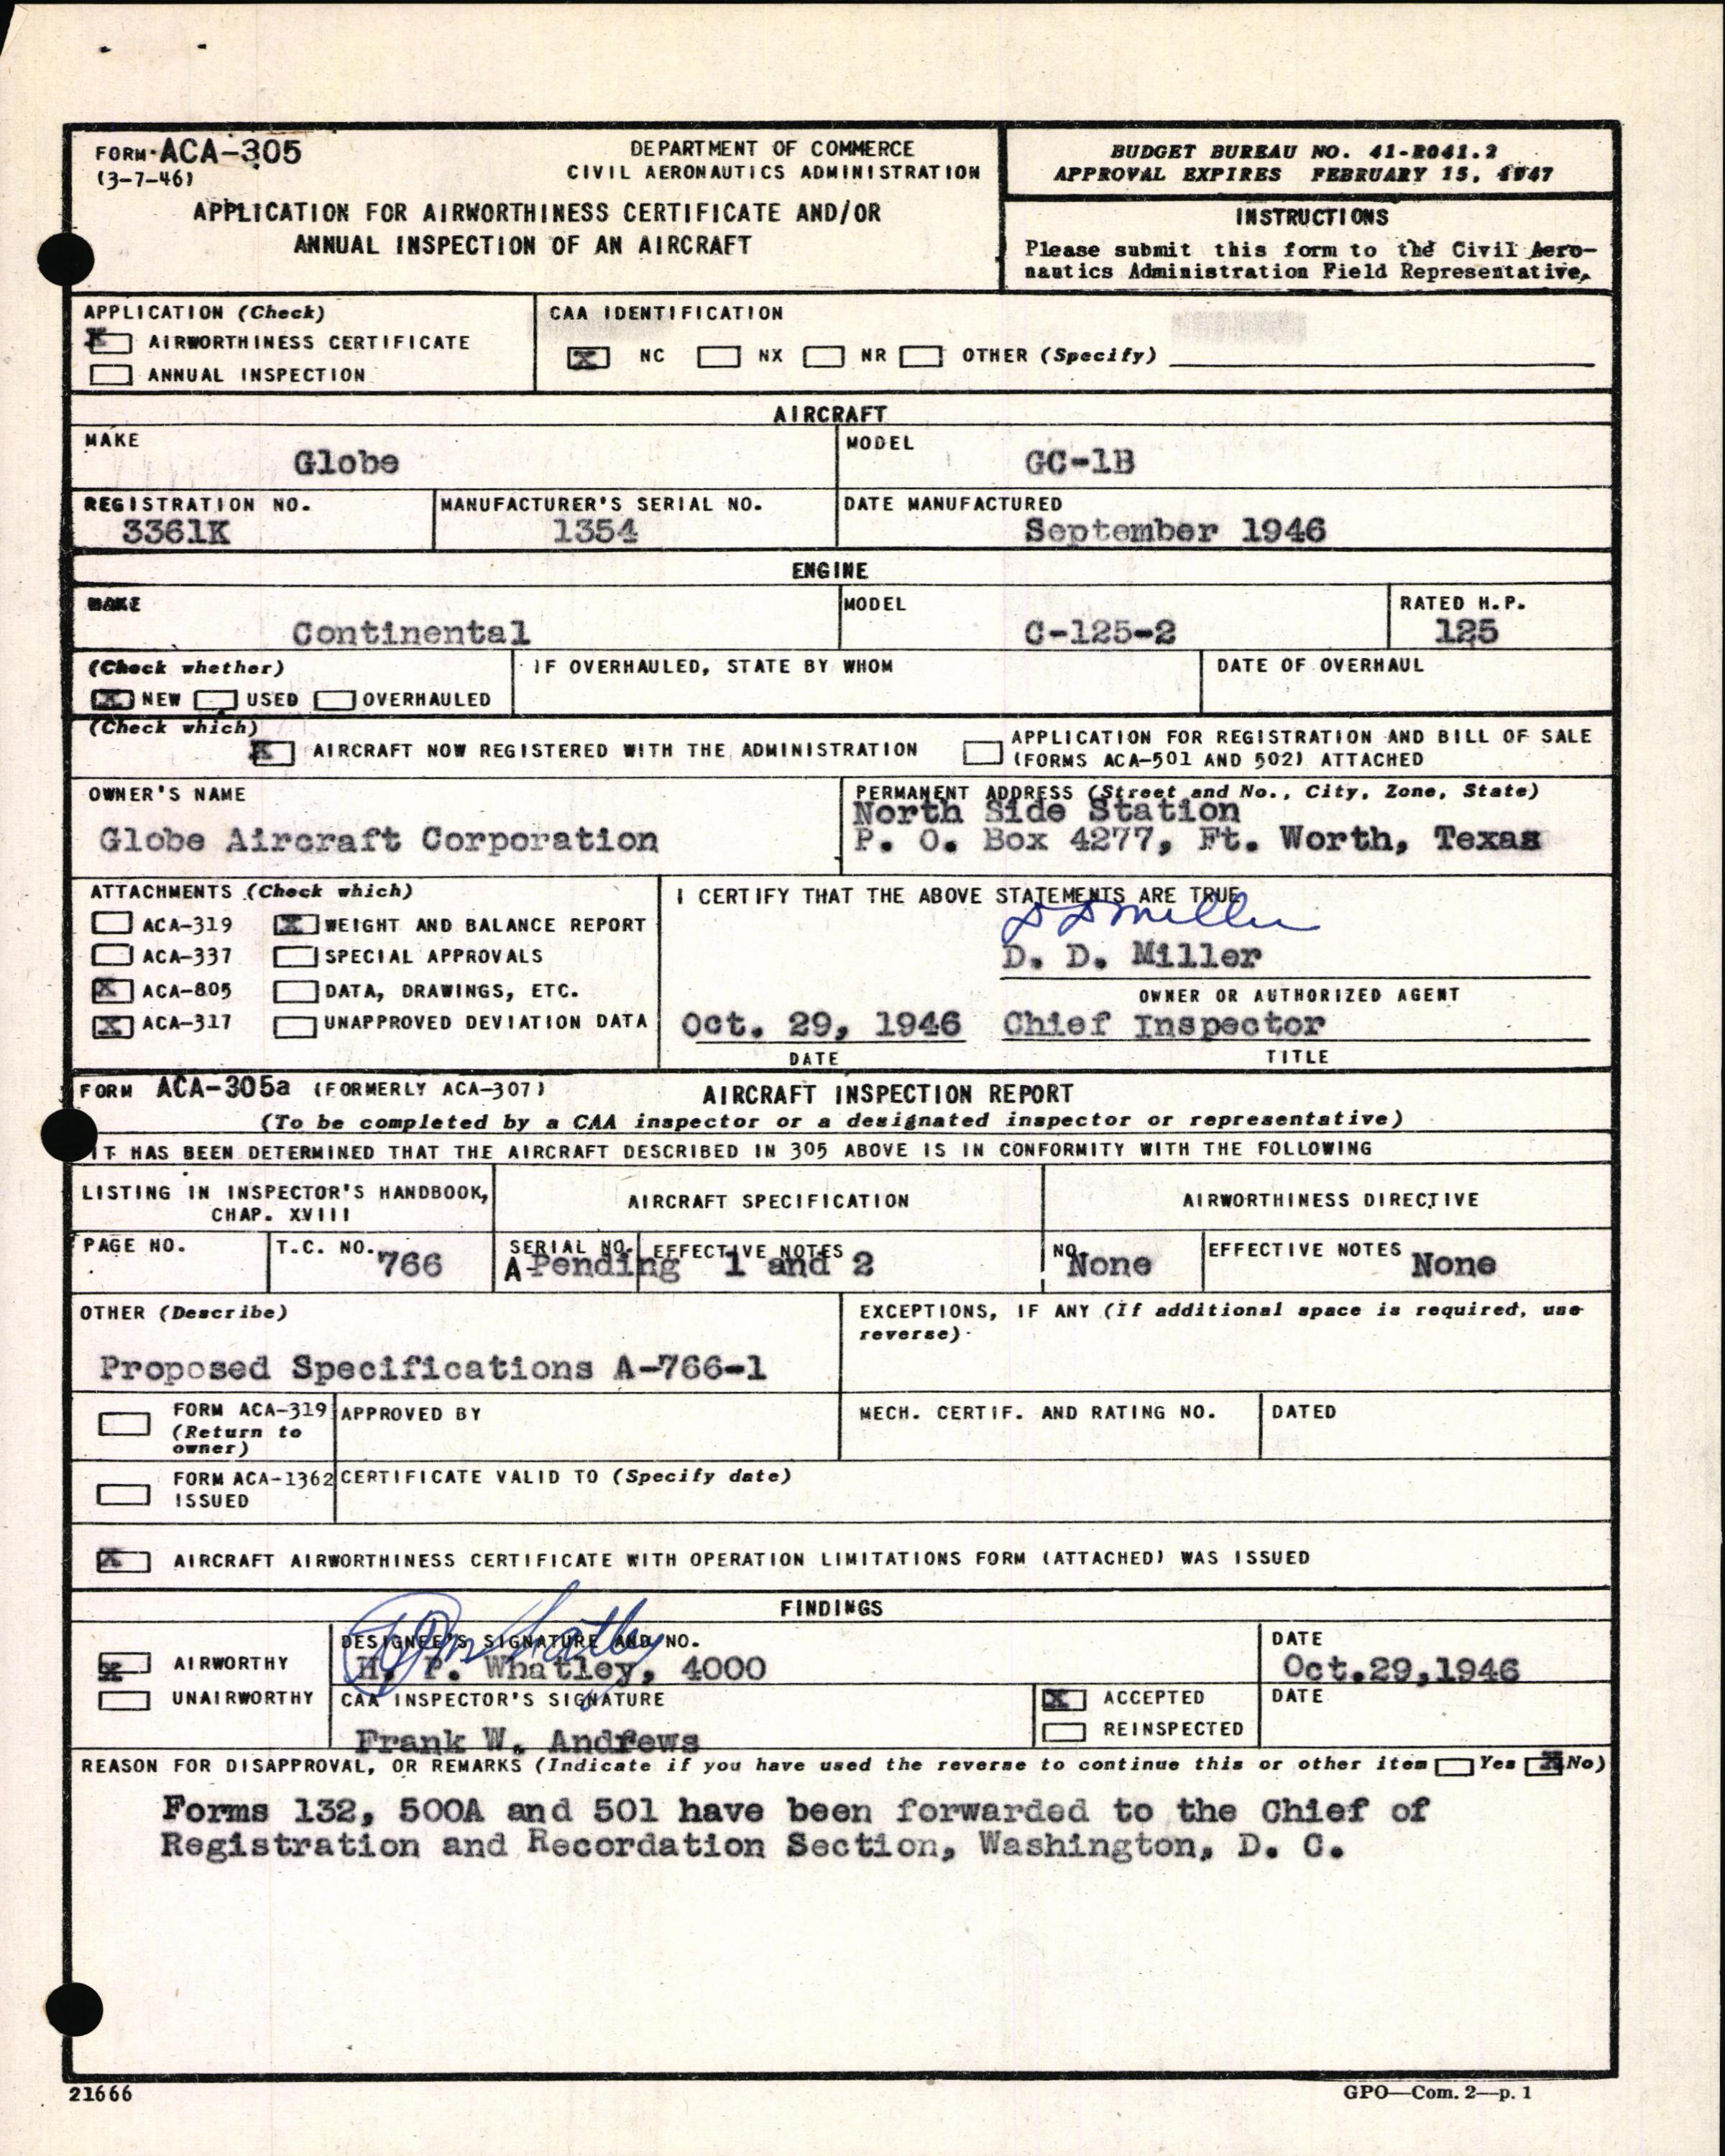 FORM ACA-305
(3-7-46)
DEPARTMENT OF COMMERCE
CIVIL AERONAUTICS ADMINISTRATION
APPLICATION FOR AIRWORTHINESS CERTIFICATE AND/OR
ANNUAL INSPECTION OF AN AIRCRAFT
BUDGET BUREAU NO. 41-R041.2
APPROVAL EXPIRES FEBRUARY 15, 1947
INSTRUCTIONS
Please submit this form to the Civil Aero-
nautics Administration Field Representative.
APPLICATION (Check)
X AIRWORTHINESS CERTIFICATE
ANNUAL INSPECTION
CAA IDENTIFICATION
X NC NX NR OTHER (Specify)
AIRCRAFT
MAKE
Globe
MODEL
GC-1B
REGISTRATION NO.
3361K
MANUFACTURER'S SERIAL NO.
1354
DATE MANUFACTURED
September 1946
ENGINE
MAKE
Continental
MODEL
C-125-2
RATED H.P.
125
(Check whether)
X NEW USED OVERHAULED
IF OVERHAULED, STATE BY WHOM
DATE OF OVERHAUL
(Check which)
X AIRCRAFT NOW REGISTERED WITH THE ADMINISTRATION
APPLICATION FOR REGISTRATION AND BILL OF SALE
(FORMS ACA-501 AND 502) ATTACHED
OWNER'S NAME
Globe Aircraft Corporation
PERMANENT ADDRESS (Street and No., City, Zone, State)
North Side Station
P. O. Box 4277, Ft. Worth, Texas
ATTACHMENTS (Check which)
ACA-319 X WEIGHT AND BALANCE REPORT
ACA-337 SPECIAL APPROVALS
X ACA-805 DATA, DRAWINGS, ETC.
X ACA-317 UNAPPROVED DEVIATION DATA
I CERTIFY THAT THE ABOVE STATEMENTS ARE TRUE
D D Miller
D. D. Miller
OWNER OR AUTHORIZED AGENT
Oct. 29, 1946 Chief Inspector
DATE TITLE
FORM ACA-305a (FORMERLY ACA-307) AIRCRAFT INSPECTION REPORT
(To be completed by a CAA inspector or a designated inspector or representative)
IT HAS BEEN DETERMINED THAT THE AIRCRAFT DESCRIBED IN 305 ABOVE IS IN CONFORMITY WITH THE FOLLOWING
LISTING IN INSPECTOR'S HANDBOOK,
CHAP. XVIII
AIRCRAFT SPECIFICATION
AIRWORTHINESS DIRECTIVE
PAGE NO.
T.C. NO. 766
SERIAL NO. EFFECTIVE NOTES
A-Pending 1 and 2
NO. None
EFFECTIVE NOTES None
OTHER (Describe)
Proposed Specifications A-766-1
EXCEPTIONS, IF ANY (If additional space is required, use
reverse)
FORM ACA-319
(Return to
owner)
APPROVED BY
MECH. CERTIF. AND RATING NO.
DATED
FORM ACA-1362
ISSUED
CERTIFICATE VALID TO (Specify date)
X AIRCRAFT AIRWORTHINESS CERTIFICATE WITH OPERATION LIMITATIONS FORM (ATTACHED) WAS ISSUED
FINDINGS
X AIRWORTHY
UNAIRWORTHY
DESIGNEE'S SIGNATURE AND NO.
H. P. Whatley, 4000
DATE
Oct.29,1946
CAA INSPECTOR'S SIGNATURE
Frank W. Andrews
X ACCEPTED
REINSPECTED
DATE
REASON FOR DISAPPROVAL, OR REMARKS (Indicate if you have used the reverse to continue this or other item Yes X No)
Forms 132, 500A and 501 have been forwarded to the Chief of
Registration and Recordation Section, Washington, D. C.
21666
GPO—Com. 2—p. 1